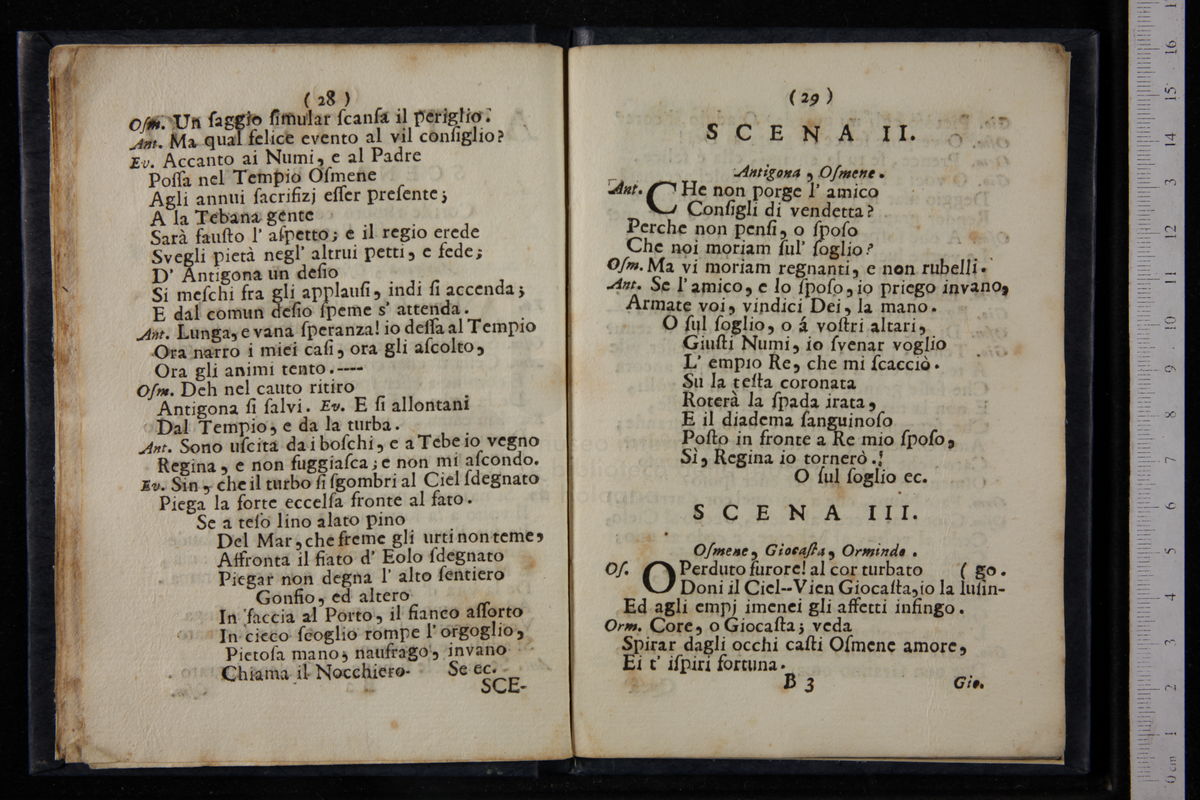 ( 28 )
Osm. Un saggio simular scansa il periglio.
Ant. Ma qual felice evento al vil consiglio?
Ev. Accanto ai Numi, e al Padre
Possa nel Tempio Osmene
Agli annui sacrifizj esser presente;
A la Tebana gente
Sarà fausto l' aspetto; e il regio erede
Svegli pietà negl' altrui petti, e fede;
D' Antigona un desio
Si meschi fra gli applausi, indi si accenda;
E dal comun desio speme s' attenda.
Ant. Lunga, e vana speranza! io dessa al Tempio
Ora narro i miei casi, ora gli ascolto,
Ora gli animi tento.----
Osm. Deh nel cauto ritiro
Antigona si salvi. Ev. E si allontani
Dal Tempio, e da la turba.
Ant. Sono uscita dai boschi, e a Tebe io vegno
Regina, e non fuggiasca; e non mi ascondo.
Ev. Sin, che il turbo si sgombri al Ciel sdegnato
Piega la forte eccelsa fronte al fato.
Se a teso lino alato pino
Del Mar, che freme gli urti non teme,
Affronta il fiato d' Eolo sdegnato
Piegar non degna l' alto sentiero
Gonfio, ed altero
In faccia al Porto, il fianco assorto
In cieco scoglio rompe l' orgoglio,
Pietosa mano, naufrago, invano
Chiama il Nocchiero. Se ec.
SCE-
( 29 )
SCENA II.
Antigona, Osmene.
Ant. CHe non porge l' amico
Consigli di vendetta?
Perche non pensi, o sposo
Che noi moriam sul' soglio?
Osm. Ma vi moriam regnanti, e non rubelli.
Ant. Se l'amico, e lo sposo, io priego invano,
Armate voi, vindici Dei, la mano.
O sul soglio, o á vostri altari,
Giusti Numi, io svenar voglio
L' empio Re, che mi scacciò.
Su la testa coronata
Roterà la spada irata,
E il diadema sanguinoso
Posto in fronte a Re mio sposo,
Sì, Regina io tornerò.!
O sul soglio ec.
SCENA III.
Osmene, Giocasta, Ormindo.
Os. O Perduto furore! al cor turbato ( go.
Doni il Ciel--Vien Giocasta, io la lusin-
Ed agli empj imenei gli affetti infingo.
Orm. Core, o Giocasta; veda
Spirar dagli occhi casti Osmene amore,
Ei t' ispiri fortuna.
B 3 Gio.